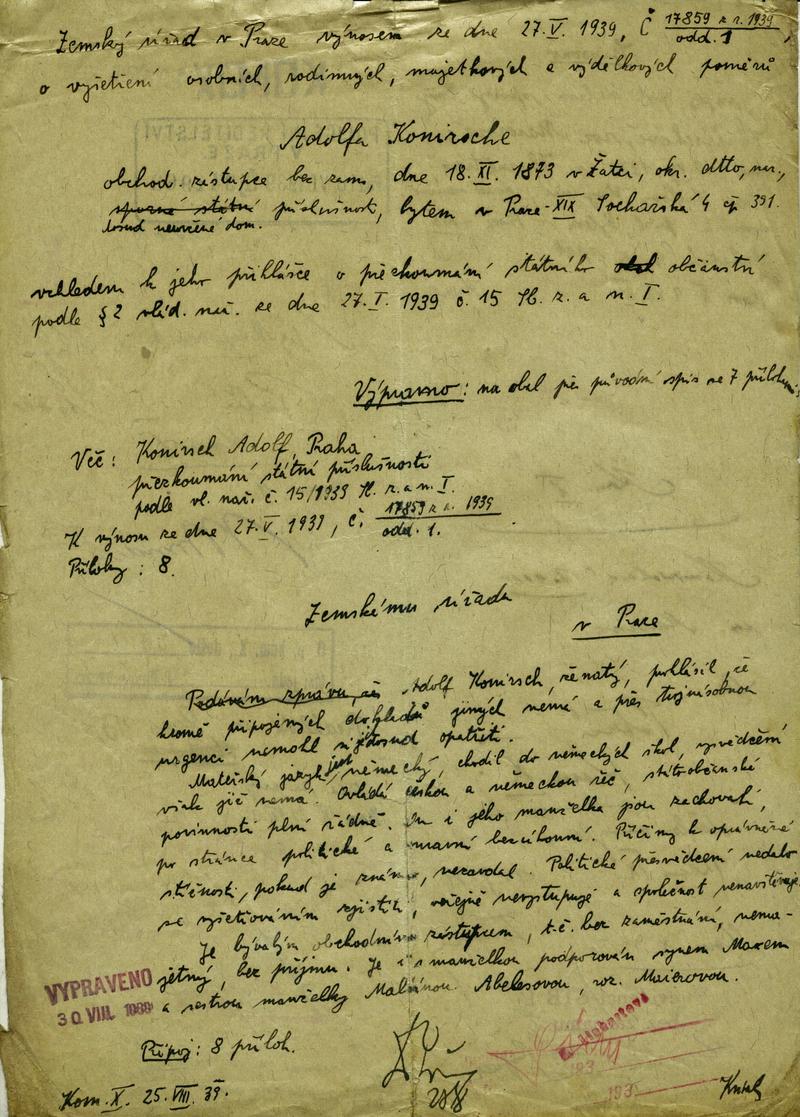 Zemský úřad v Praze výnosem ze dne 27.V. 1939, Č 17859 z r. 1939 odd. 1,
o vyšetření osobních, rodinných, majetkových a výdělkových poměrů
Adolfa Konirsche
obchod. zástupce bez zam., dne 18.XI. 1873 v Žatci, okr. dtto, nar.,
sporné státní příslušnosti, bytem v Praze-XIX Sochařská 4 čp 391.
dosud neurčené dom.
vzhledem k jeho přihlášce o přezkoumání státního občanství
podle § 2 vlád. nař. ze dne 27.I. 1939 č. 15 Sb. z. a n. I.
Výpravno: na obal její původní spis se 7 přílohami
Věc: Konirsch Adolf, Praha
přezkoumání státní příslušnosti
podle vl. nař. č. 15/1939 Sb. z. a n. I.
K výnosu ze dne 27.V. 1939, č. 17859 z r. 1939 odd. 1.
Přílohy: 8.
Zemskému úřadu
v Praze
Podávám zprávu, že Adolf Konirsch, ženatý, prohlásil, že
kromě připojených dokladů jiných nemá a přes trojnásobnou
urgenci nemohl si je dosud opatřiti.
Mateřský jazyk jest německý, chodil do německých škol, vysvědčení
však již nemá. Ovládá českou a německou řeč, státoobčanské
povinnosti plní řádně. On i jeho manželka jsou zachovalí,
po stránce politické a mravní bezúhonní. Příčiny k oprávněné
stížnosti, pokud je známo, nezavdal. Politické přesvědčení nedalo
se vyšetřováním zjistiti, veřejně nevystupuje a společnost nenavštěvuje.
Je bývalým obchodním zástupcem, t.č. bez zaměstnání, nema-
jetný, bez příjmu. Je i s manželkou podporován synem Maxem
a sestrou manželky Malvínou Abelesovou, roz. Maierovou.
VYPRAVENO
30. VIII. 1939
Připoj: 8 příloh.
Kom. X. 25. VIII. 39.